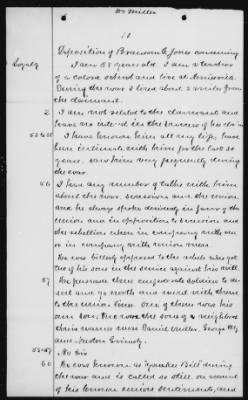 Dr Miller
10
Deposition of Branson L. Jones concerning
Loyalty
I am 58 years old I am a teacher
of a colored school and live at Maryville.
During the war I lived about 2 miles from
the claimant.
2 I am not related to the claimant and
have no interest in the success of his claim
53 to 55 I have known him all my life, have
been intimate with him for the last 30
years. saw him very frequently during
the war.
56 I have any number of talks with him
about the war, secession and the union
and he always spoke decidedly in favor of the
union and in opposition to secession and
the rebellion when in company with me
or in company with union men.
He was bitterly opposed to the rebels who got
one of his sons in the service against his will.
57 He persuaded three confederate soldiers to de
sert and go north and went with them
to the union lines. One of them was his
own son. The two the sons of a neighbor
their names were Daniel Miller, George
and
No Sir
60 He was known as "Yankee Bill" during the
war and is called so still, on account
of his known union sentiments, and